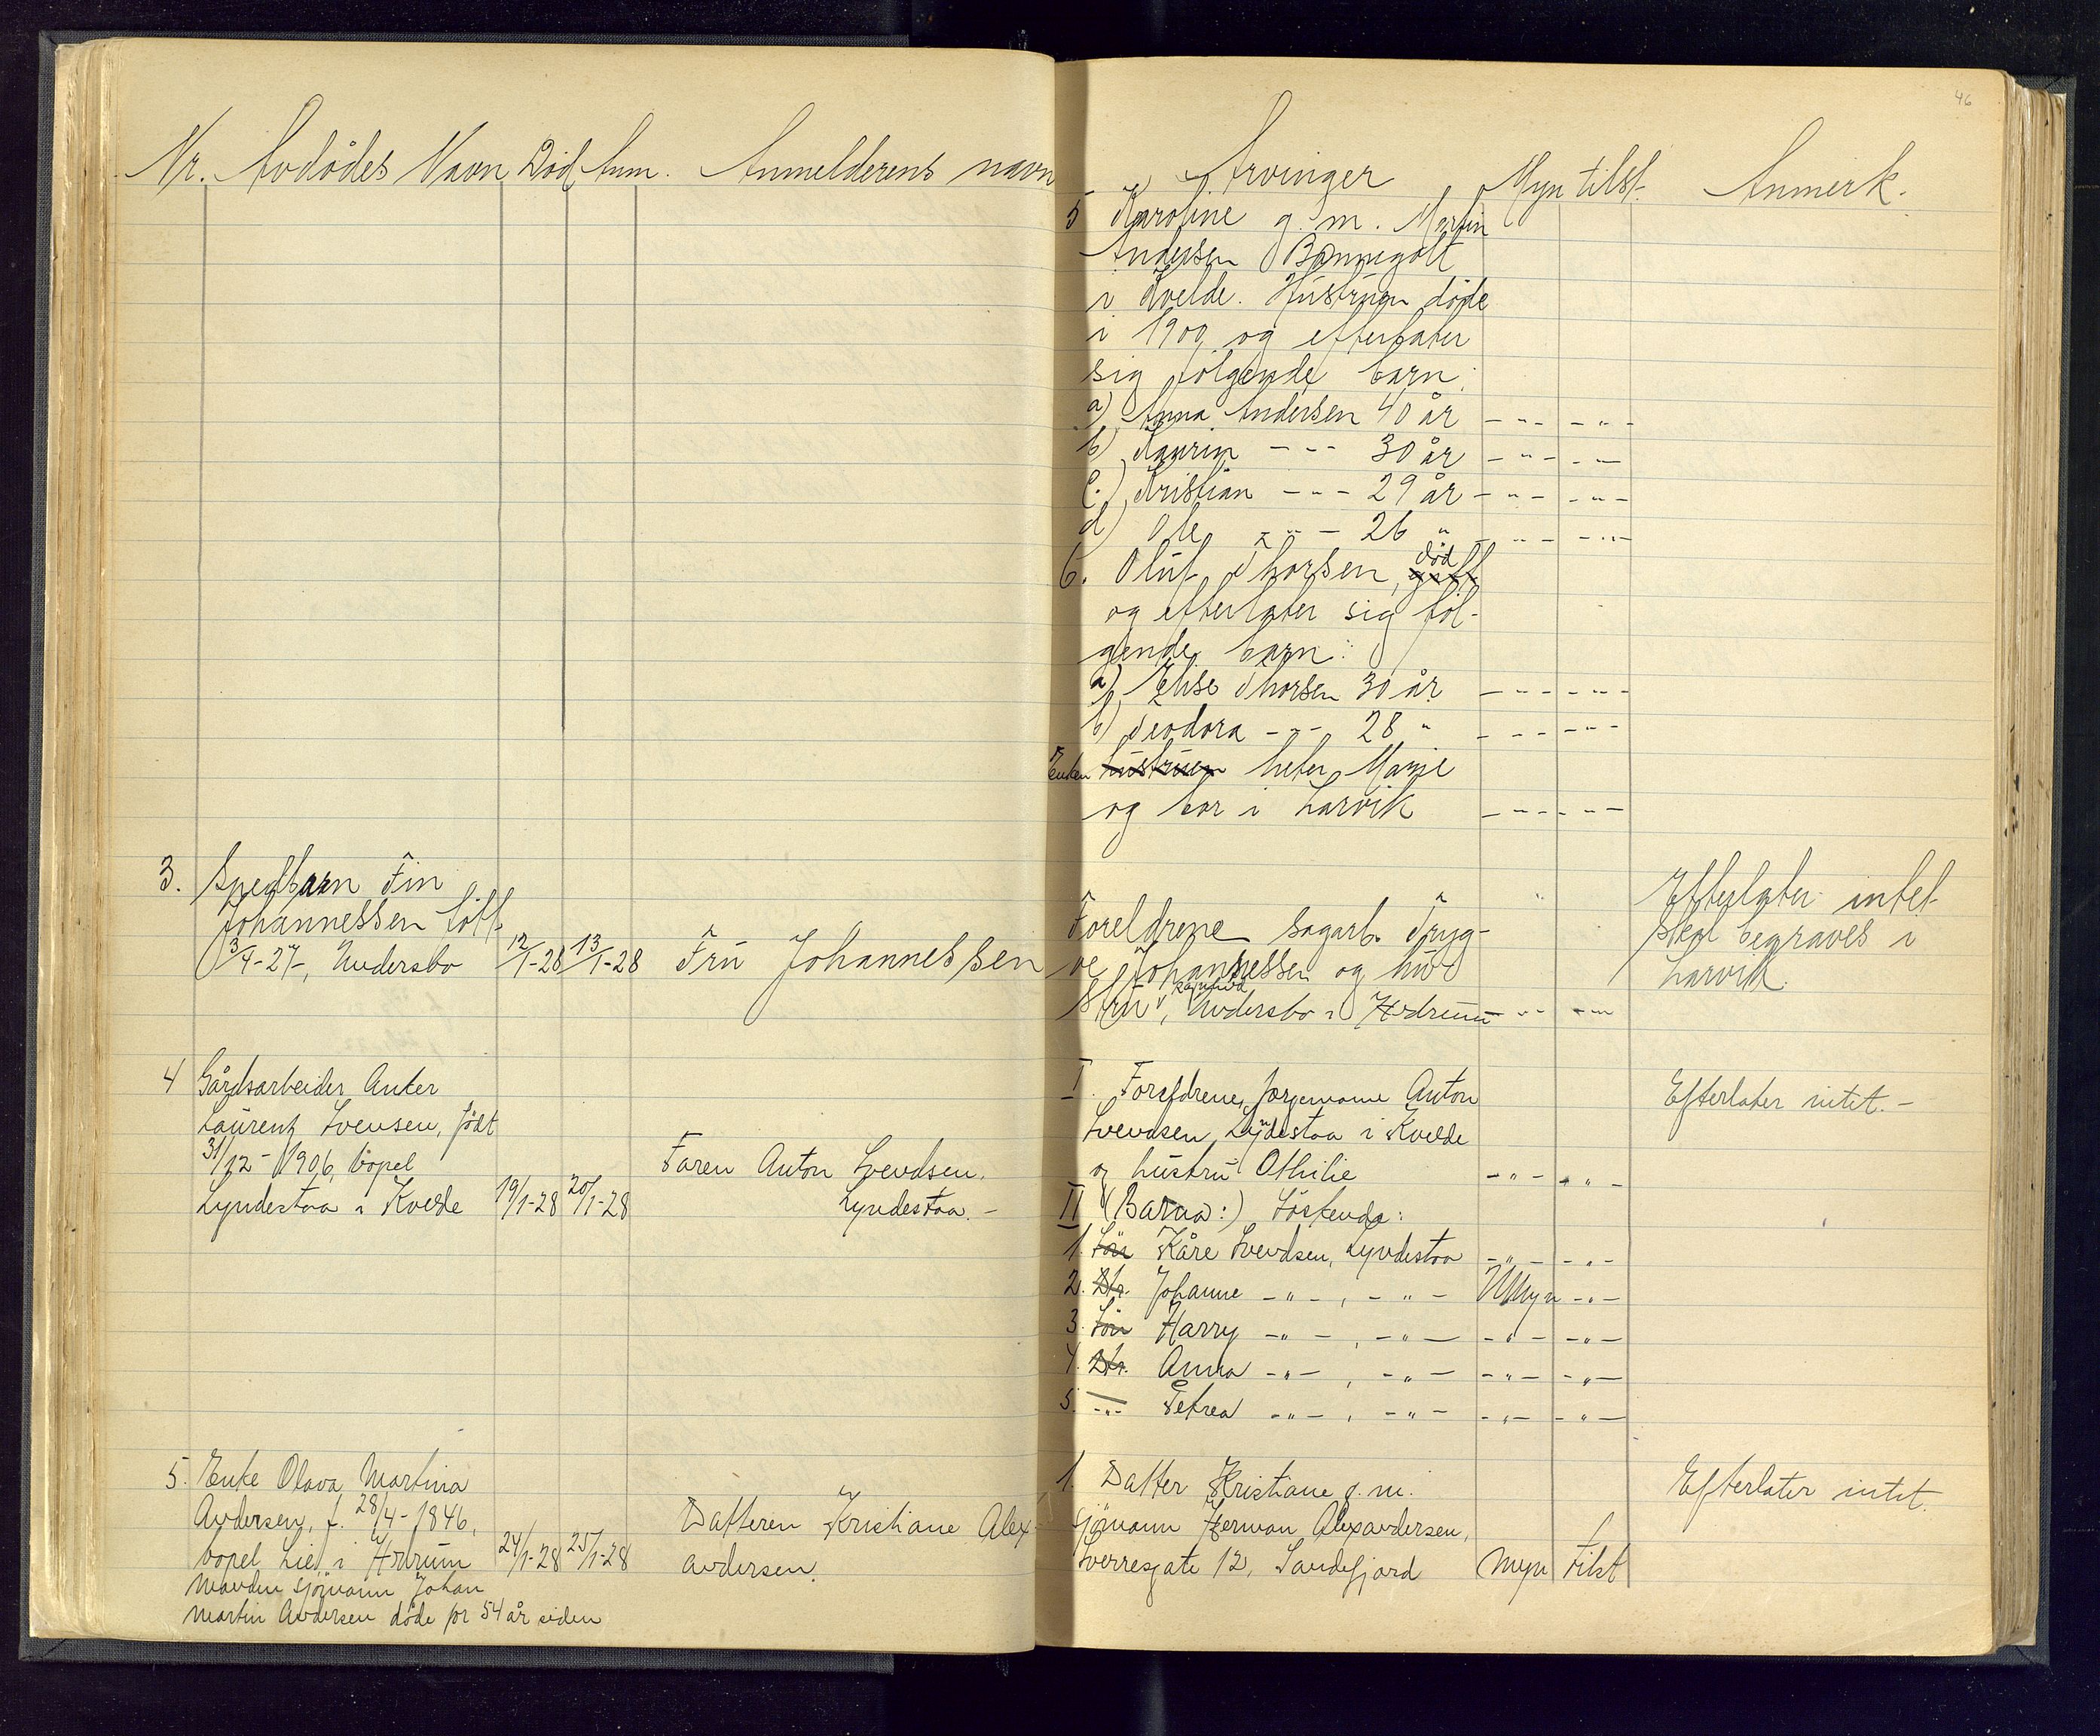 46
Nr. Avdödes Navn Död Anm. Anmelderens navn
Arvinger Myn tilst. Anmerk.
5 Karoline g. m. Martin
Andersen
i Kvelde. Hustruen döde
i 1909 og efterlater
sig følgende barn:
a) Anna Andersen 40 år - " - - " -
b) Laurin - " - 30 år - " - - " -
c.) Kristian - " - 29 år - " - - " -
d) Ole - " - 26 " - " - - " -
6. Oluf Thorsen, död
og efterlater sig föl-
gende barn:
a) Elise Thorsen 30 år - " - - " -
b) Teodora - " - 28 " - " - - " -
Enken hustruen heter Marie
og bor i Larvik - " - - " -
3. Spedbarn Fin
Johannessen födt
3/4-27, Andersbo 12/1-28 13/1-28 Fru Johannessen
Foreldrene sagarb. Tryg-
ve Johannessen og hu-
stru Ragnhild, Andersbo i Hedrum - " - - " -
Efterlater intet
Skal begraves i
Larvik.
4 Gårdsarbeider Anker
Laurentz Svensen, födt
31/12-1906, bopel
Lyndestaa i Kvelde 19/1-28 20/1-28
Faren Anton Svendsen,
Lyndestaa. -
I. Foreldrene, Anton
Svendsen, Lyndestaa i Kvelde
og hustru Othilie - " - - " -
II (Barna:) Söskende:
1. Sön Kåre Svendsen, Lyndestaa - " - - " -
2. Dtr. Johanne - " - , - " - Umyn - " -
3. Sön Harry - " - , - " - - " - - " -
4. Dtr. Anna - " - , - " - - " - - " -
5. - " - Petrea - " - , - " - - " - - " -
Efterlater intet. -
5. Enke Olava Martina
Andersen, f. 28/4-1846,
bopel Lie i Hedrum 24/1-28 25/1-28
Manden sjömann Johan
Martin Andersen döde for 54 år siden
Datteren Kristiane Alex-
andersen.
1. Datter Kristiane g. m.
sjömann Herman Alexandersen,
Sverresgate 12, Sandefjord Myn tilst
Efterlater intet.